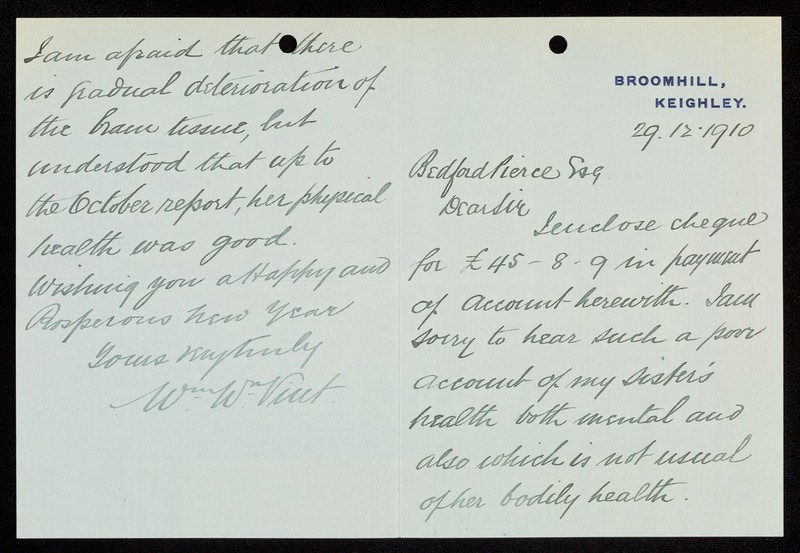 BROOMHILL,
KEIGHLEY.
29.12.1910
Bedford Pierce Esq
Dear Sir
I enclose cheque
for £45-8-9 in payment
of account herewith. I am
sorry to hear such a poor
account of my sister's
health both mental and
also which is not usual
of her bodily health.
I am afraid that there
is gradual deterioration of
the brain tissue, but
understood that up to
the October report, her physical
health was good.
Wishing you a Happy and
Prosperous New Year
Yours very truly
Wm. Wn. Vint.